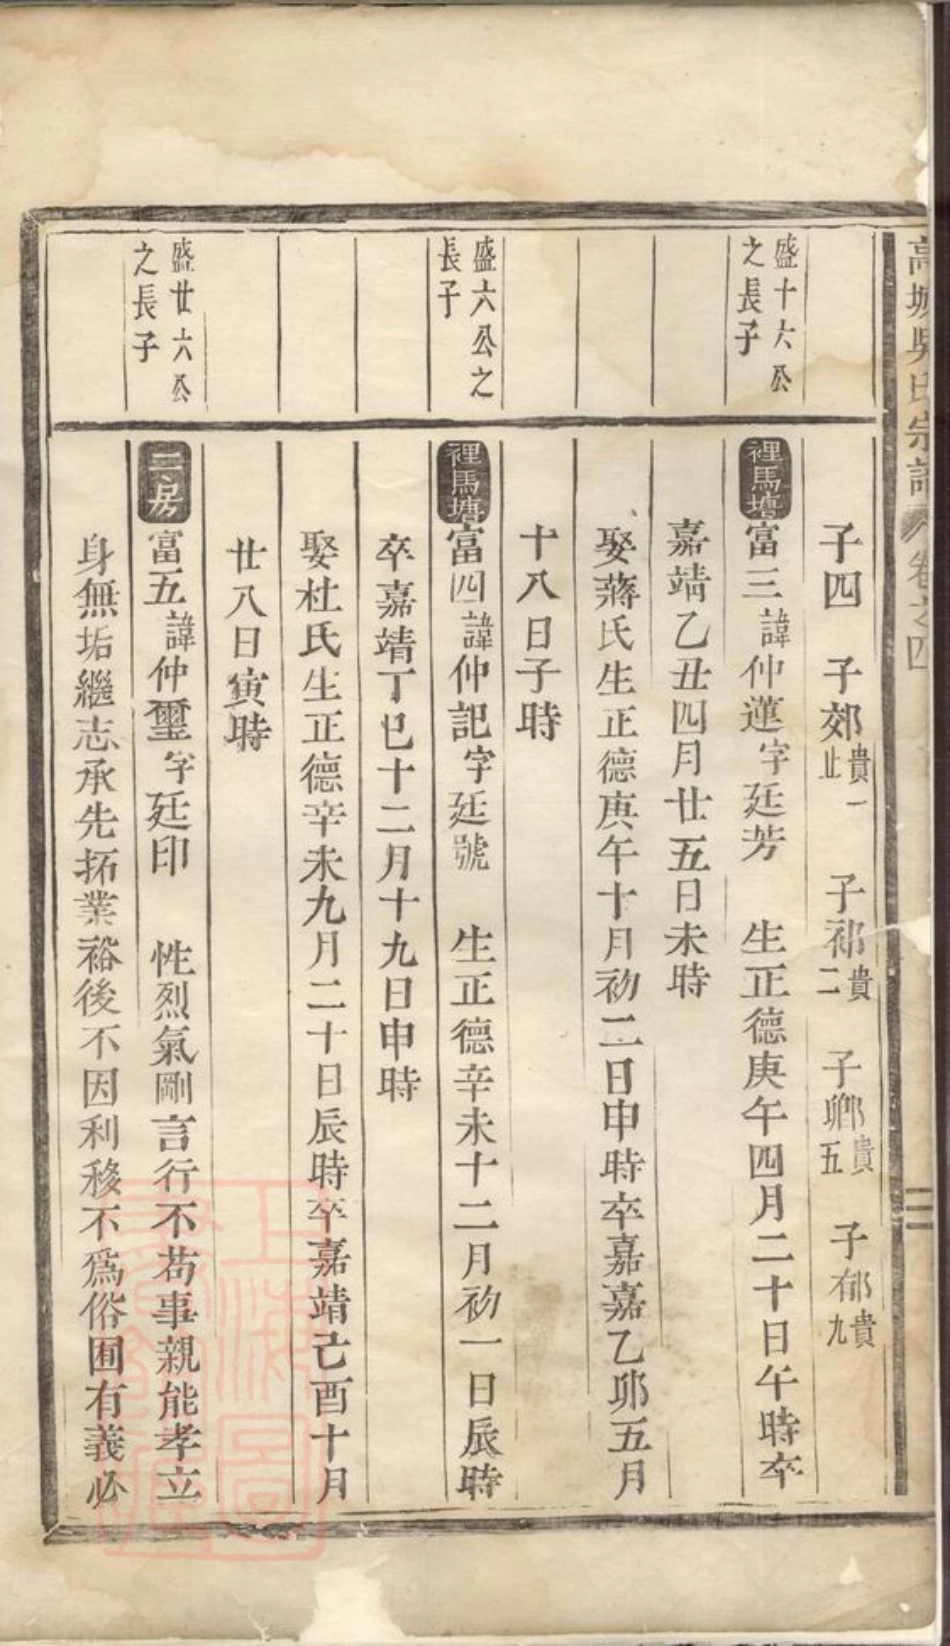 高城吳氏宗譜 卷之四
二
子四 子郊貴一止 子祁貴二 子鄉貴五 子郁貴九
盛十六公
之長子
裡馬塘 富三諱仲蓮字廷芳 生正德庚午四月二十日午時卒
嘉靖乙丑四月廿五日未時
娶蔣氏生正德庚午十月初二日申時卒嘉嘉乙卯五月
十八日子時
盛六公之
長子
裡馬塘 富四諱仲記字廷號 生正德辛未十二月初一日辰時
卒嘉靖丁巳十二月十九日申時
娶杜氏生正德辛未九月二十日辰時卒嘉靖己酉十月
廿八日寅時
盛廿六公
之長子
二房 富五諱仲璽字廷印 性烈氣剛言行不苟事親能孝立
身無垢繼志承先拓業裕後不因利移不爲俗囿有義必